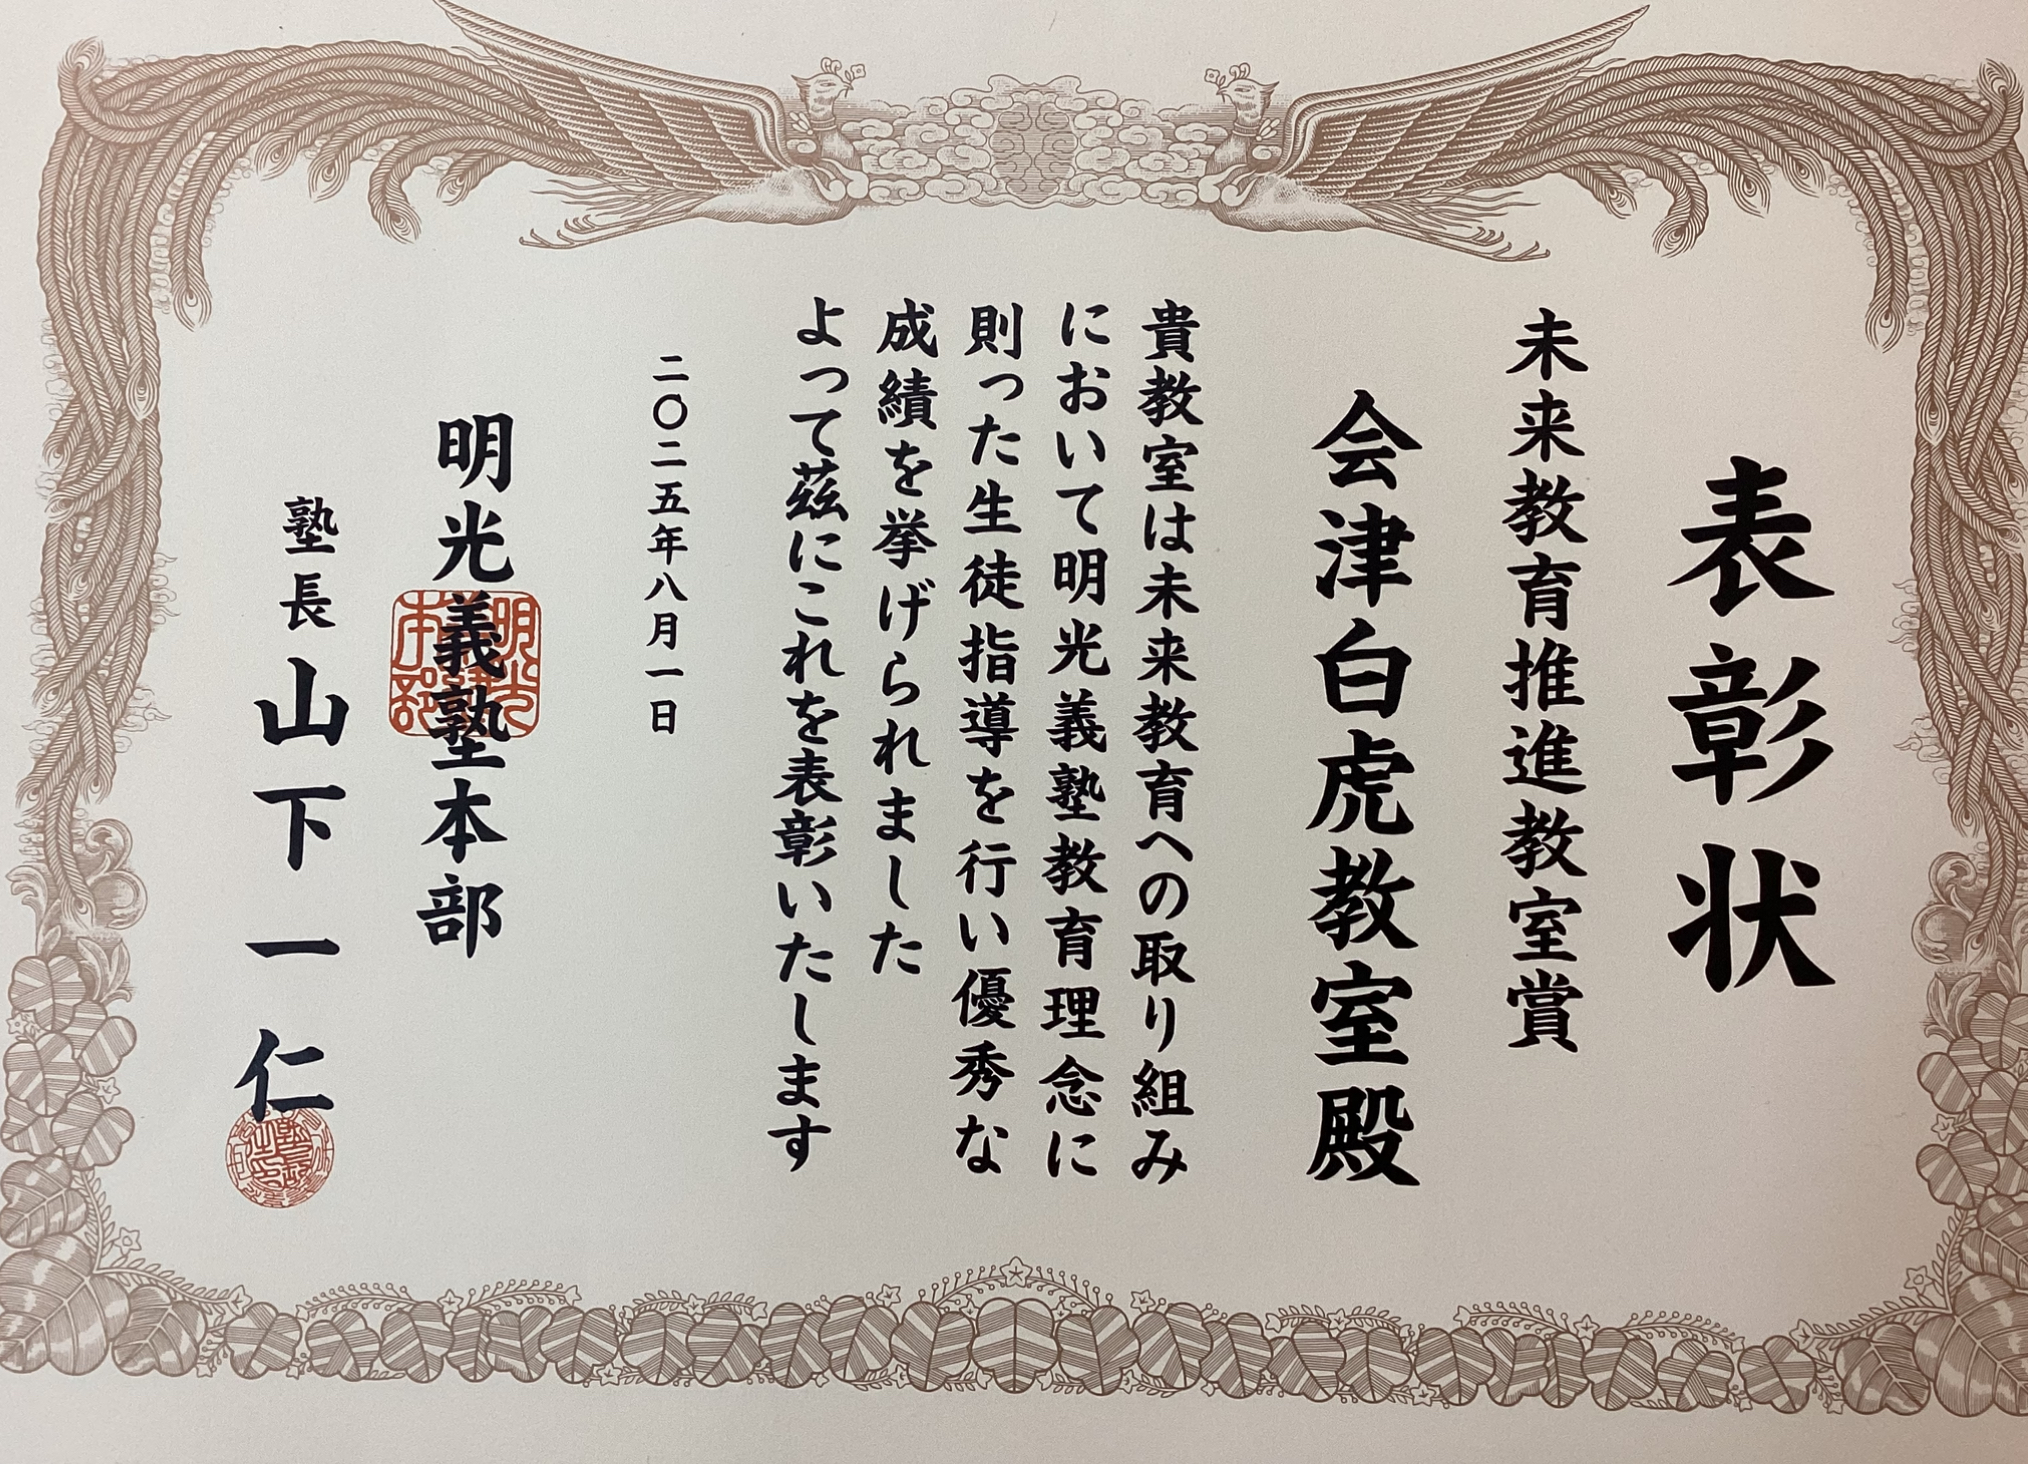 表彰状
未来教育推進教室賞
会津白虎教室殿
貴教室は未来教育への取り組み
において明光義塾教育理念に
則った生徒指導を行い優秀な
成績を挙げられました
よって茲にこれを表彰いたします
二〇二五年八月一日
明光義塾本部
塾長 山下一仁